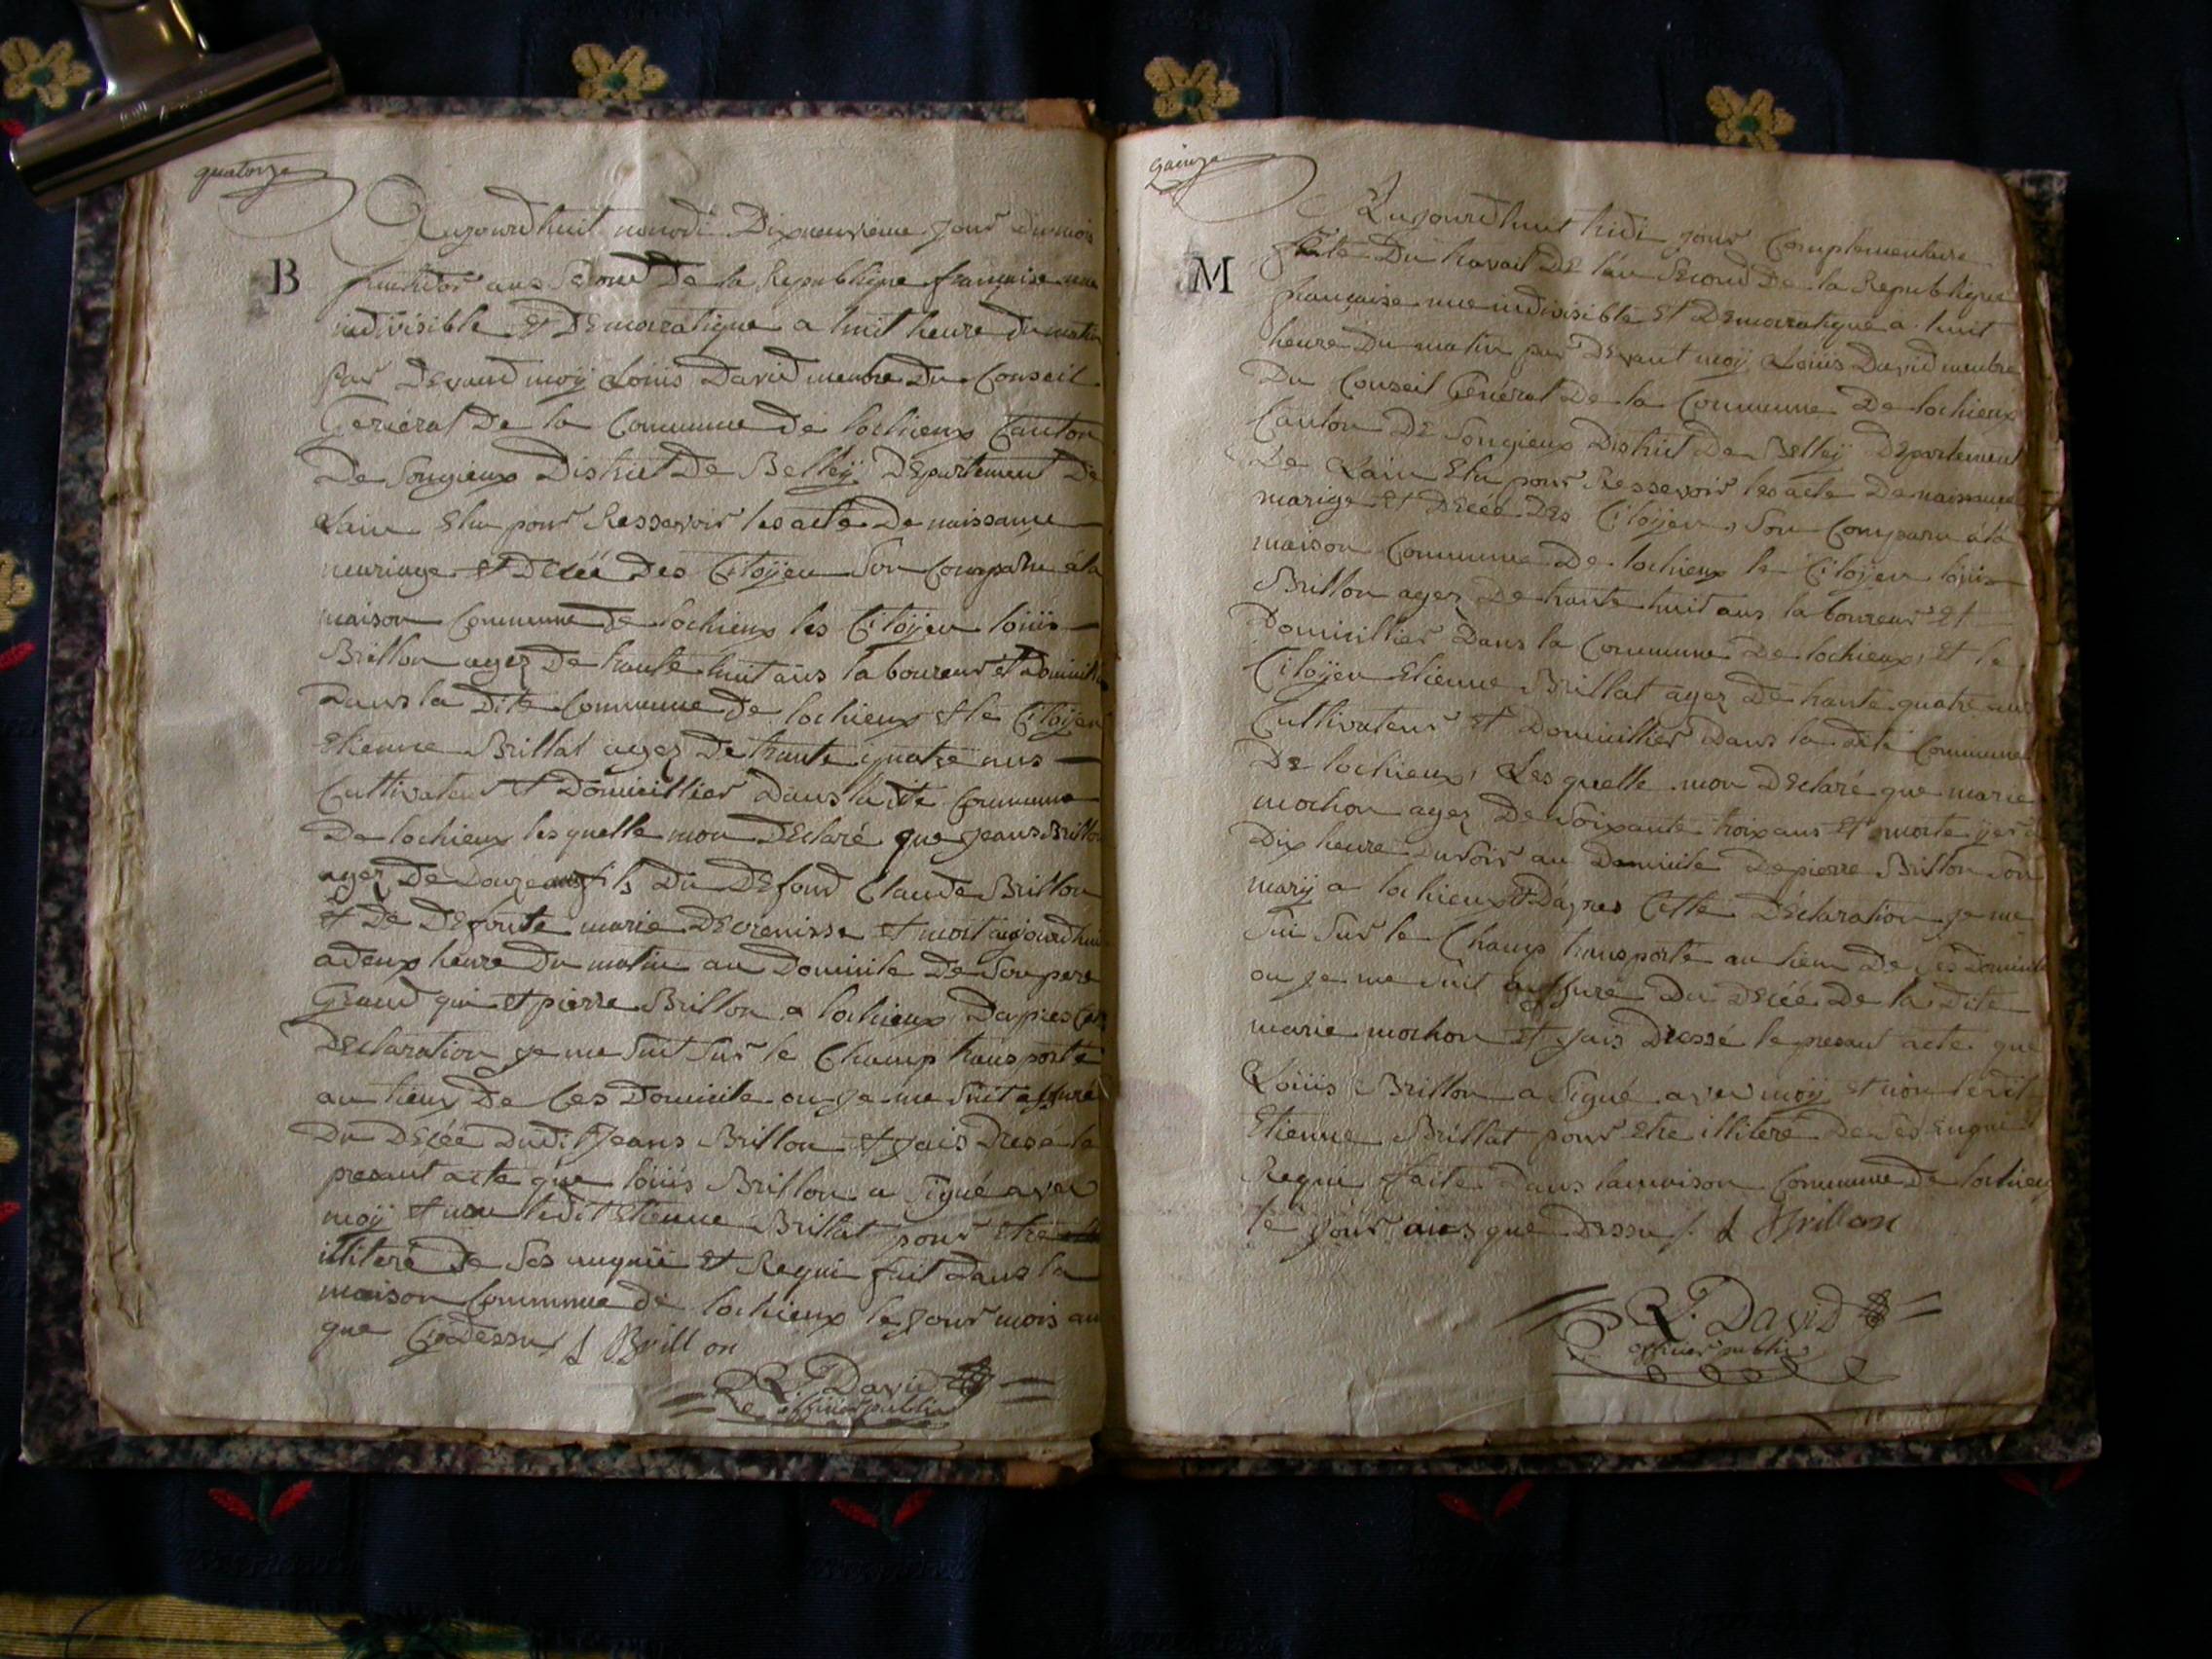 quatorze
Aujourdhuit nonodi Dixneuvieme jour du mois
B
fructidor ans Second De la Republique francaise une
indivisible Et DEmocratique a huit heure du matin
par Devand moÿ Loüis David menbre Du Conseil
General De la Commune de lochieux Canton
De Songieux District De Belleÿ DEpartement De
Lain Elu pour Ressevoir les acte De naissance
meariage Et Décéé Des Citoÿen Son Comparu á la
maison Commune De lochieux les Citoÿen loüis
Brillon agez De trante huit ans laboureur et Domicillie
Dans la Dite Commune De lochieux et le Citoÿen
Etienne Brillat agez De trante quatre ans
Cultivateur Et Domicillier Dans la dite Commune
De lochieux lesquelle mon DEclaré que Jeans Brillon
agez De Douze ans fils Du DEfond Claude Brillon
et De Defonte marie DEcrenisse et mort aujourdhui
a deux heure Du matin au Domicile De Son pere
Grand qui Et pierre Brillon a lochieux Dapres Cete
DEclaration je me Suit Sur le Champ transporté
au lieux De Ces Domicile ou je me Suit assuré
Du DEcéé Dudit Jeans Brillon et jais Dresé le
presant acte que loüis Brillon a Signé avec
moÿ et non ledit Etienne Brillat pour Etre
illiteré De Ses enquie Et Requi fait Dans la
maison Commune de lochieux le jour mois an
que Cy Dessu / L Brillon
L. David
officier public
quinze
Aujourdhuit tridi jour Complementaire
M
fete Du travail DE l'an Second De la Republique
francaise une indivisible Et DEmocratique a huit
heure Du matin par Devant moÿ Loüis David menbre
Du Conseil General De la Commune De lochieux
Canton De Songieux District De Belleÿ DEpartement
De Lain Elu pour Ressevoir les acte De naissance
marige Et Décéé DEs Citoÿen, Son Comparu á la
maison Commune De lochieux le Citoÿen loüis
Brillon agez De trante huit ans laboureur Et
Domicillier Dans la Commune De lochieux, Et le
Citoÿen Etienne Brillat agez De trante quatre ans
Cultivateur Et Domicillier Dans la dite Commune
De lochieux, Lesquelle mon DEclaré que marie
mochon agez De Soixante troix ans Et morte yer a
Dix heure Du Soir au Domicile De pierre Brillon Son
marÿ a lochieux Et Dapres Cette DEclaration je me
Sui Sur le Champ transporté au lieu De Ses Domicile
ou je me Suit assuré Du DEcéé De la Dite
marie mochon Et jais Dressé le presant acte que
Loüis Brillon a Signé avec moÿ et non ledit
Etienne Brillat pour Etre illiteré De Ses Enquie
Requi faite Dans la maison Commune De lochieu
le jour ans que Dessu /. L Brillon
L. David
officier public